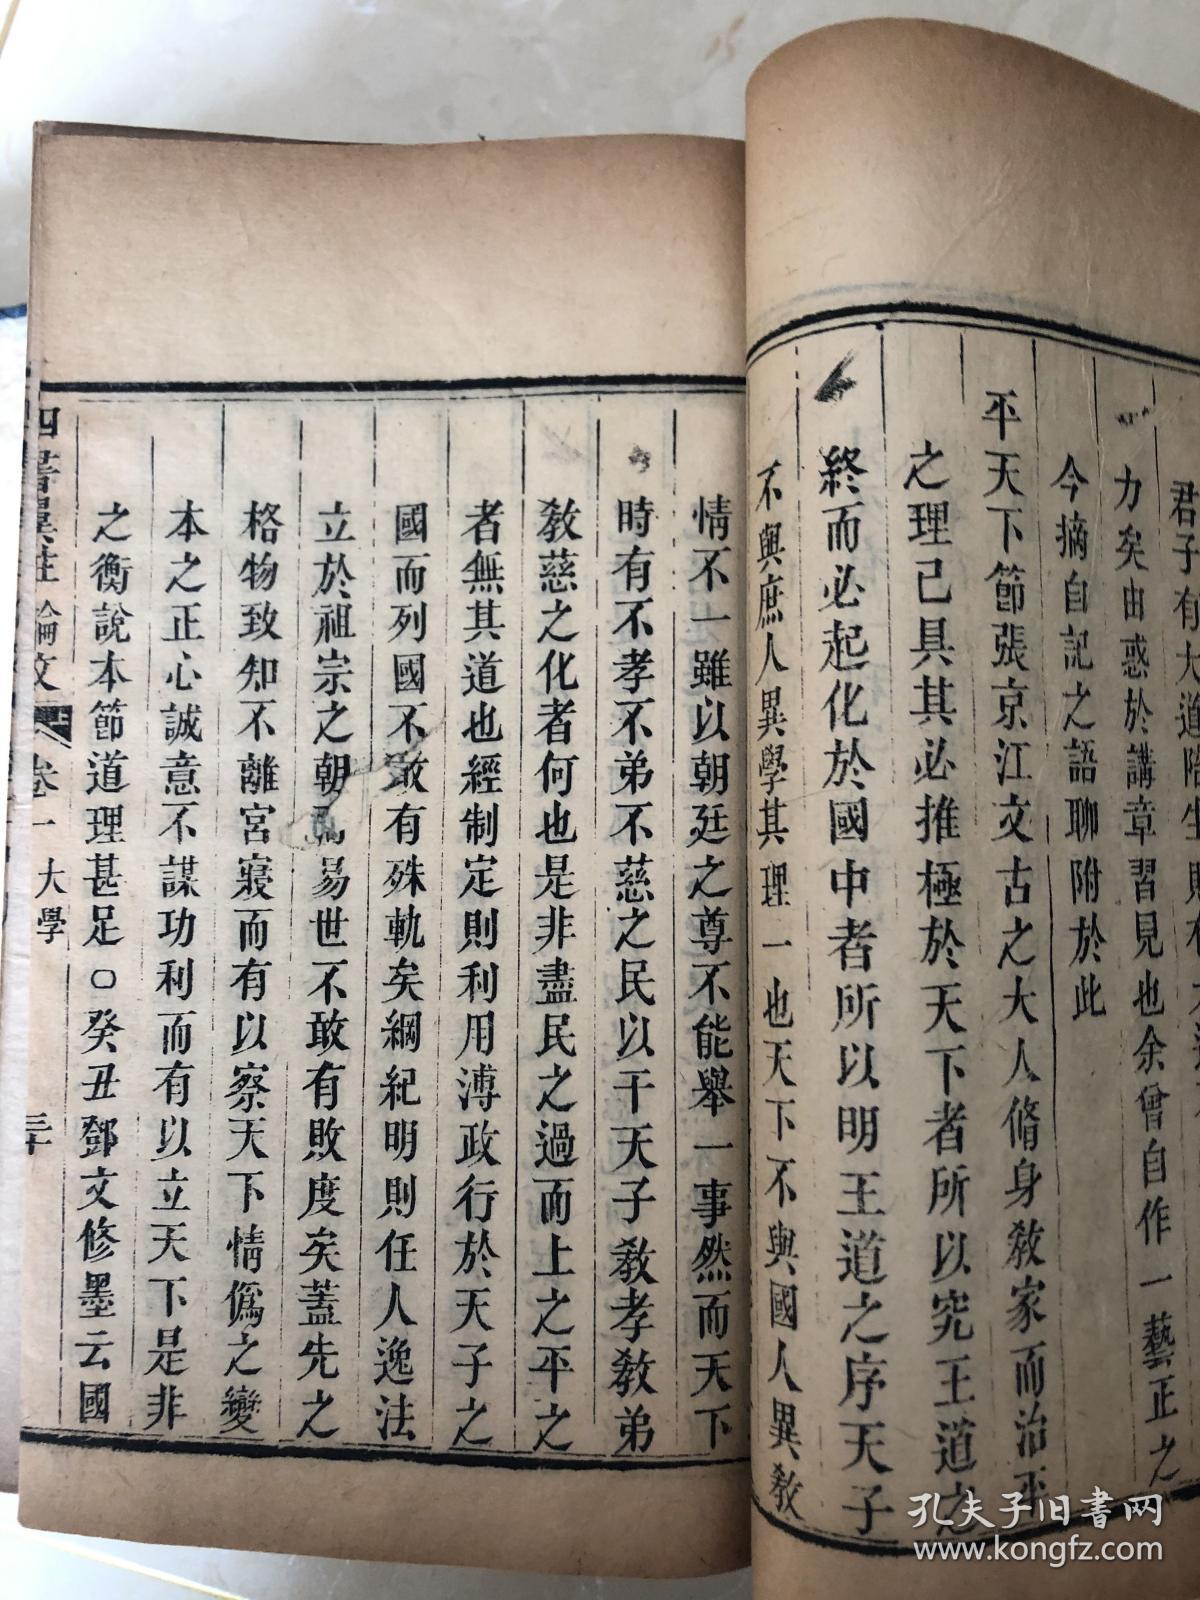 君子有大道
力矣由惑於講章習見也余曾自作一藝正之
今摘自記之語聊附於此
平天下節張京江文古之大人脩身教家而治平
之理己具其必推極於天下者所以究王道之
終而必起化於國中者所以明王道之序天子
不與庶人異學其理一也天下不與國人異教
情不一雖以朝廷之尊不能舉一事然而天下
時有不孝不弟不慈之民以干天子教孝教弟
教慈之化者何也是非盡民之過而上之平之
者無其道也經制定則利用溥政行於天子之
國而列國不敢有殊軌矣綱紀明則任人逸法
立於祖宗之朝而易世不敢有敗度矣蓋先之
格物致知不離宮寢而有以察天下情僞之變
本之正心誠意不謀功利而有以立天下是非
之衡說本節道理甚足○癸丑鄧文修墨云國
四書異註 論文 上 卷一 大學 三十
孔夫子旧书网
www.kongfz.com